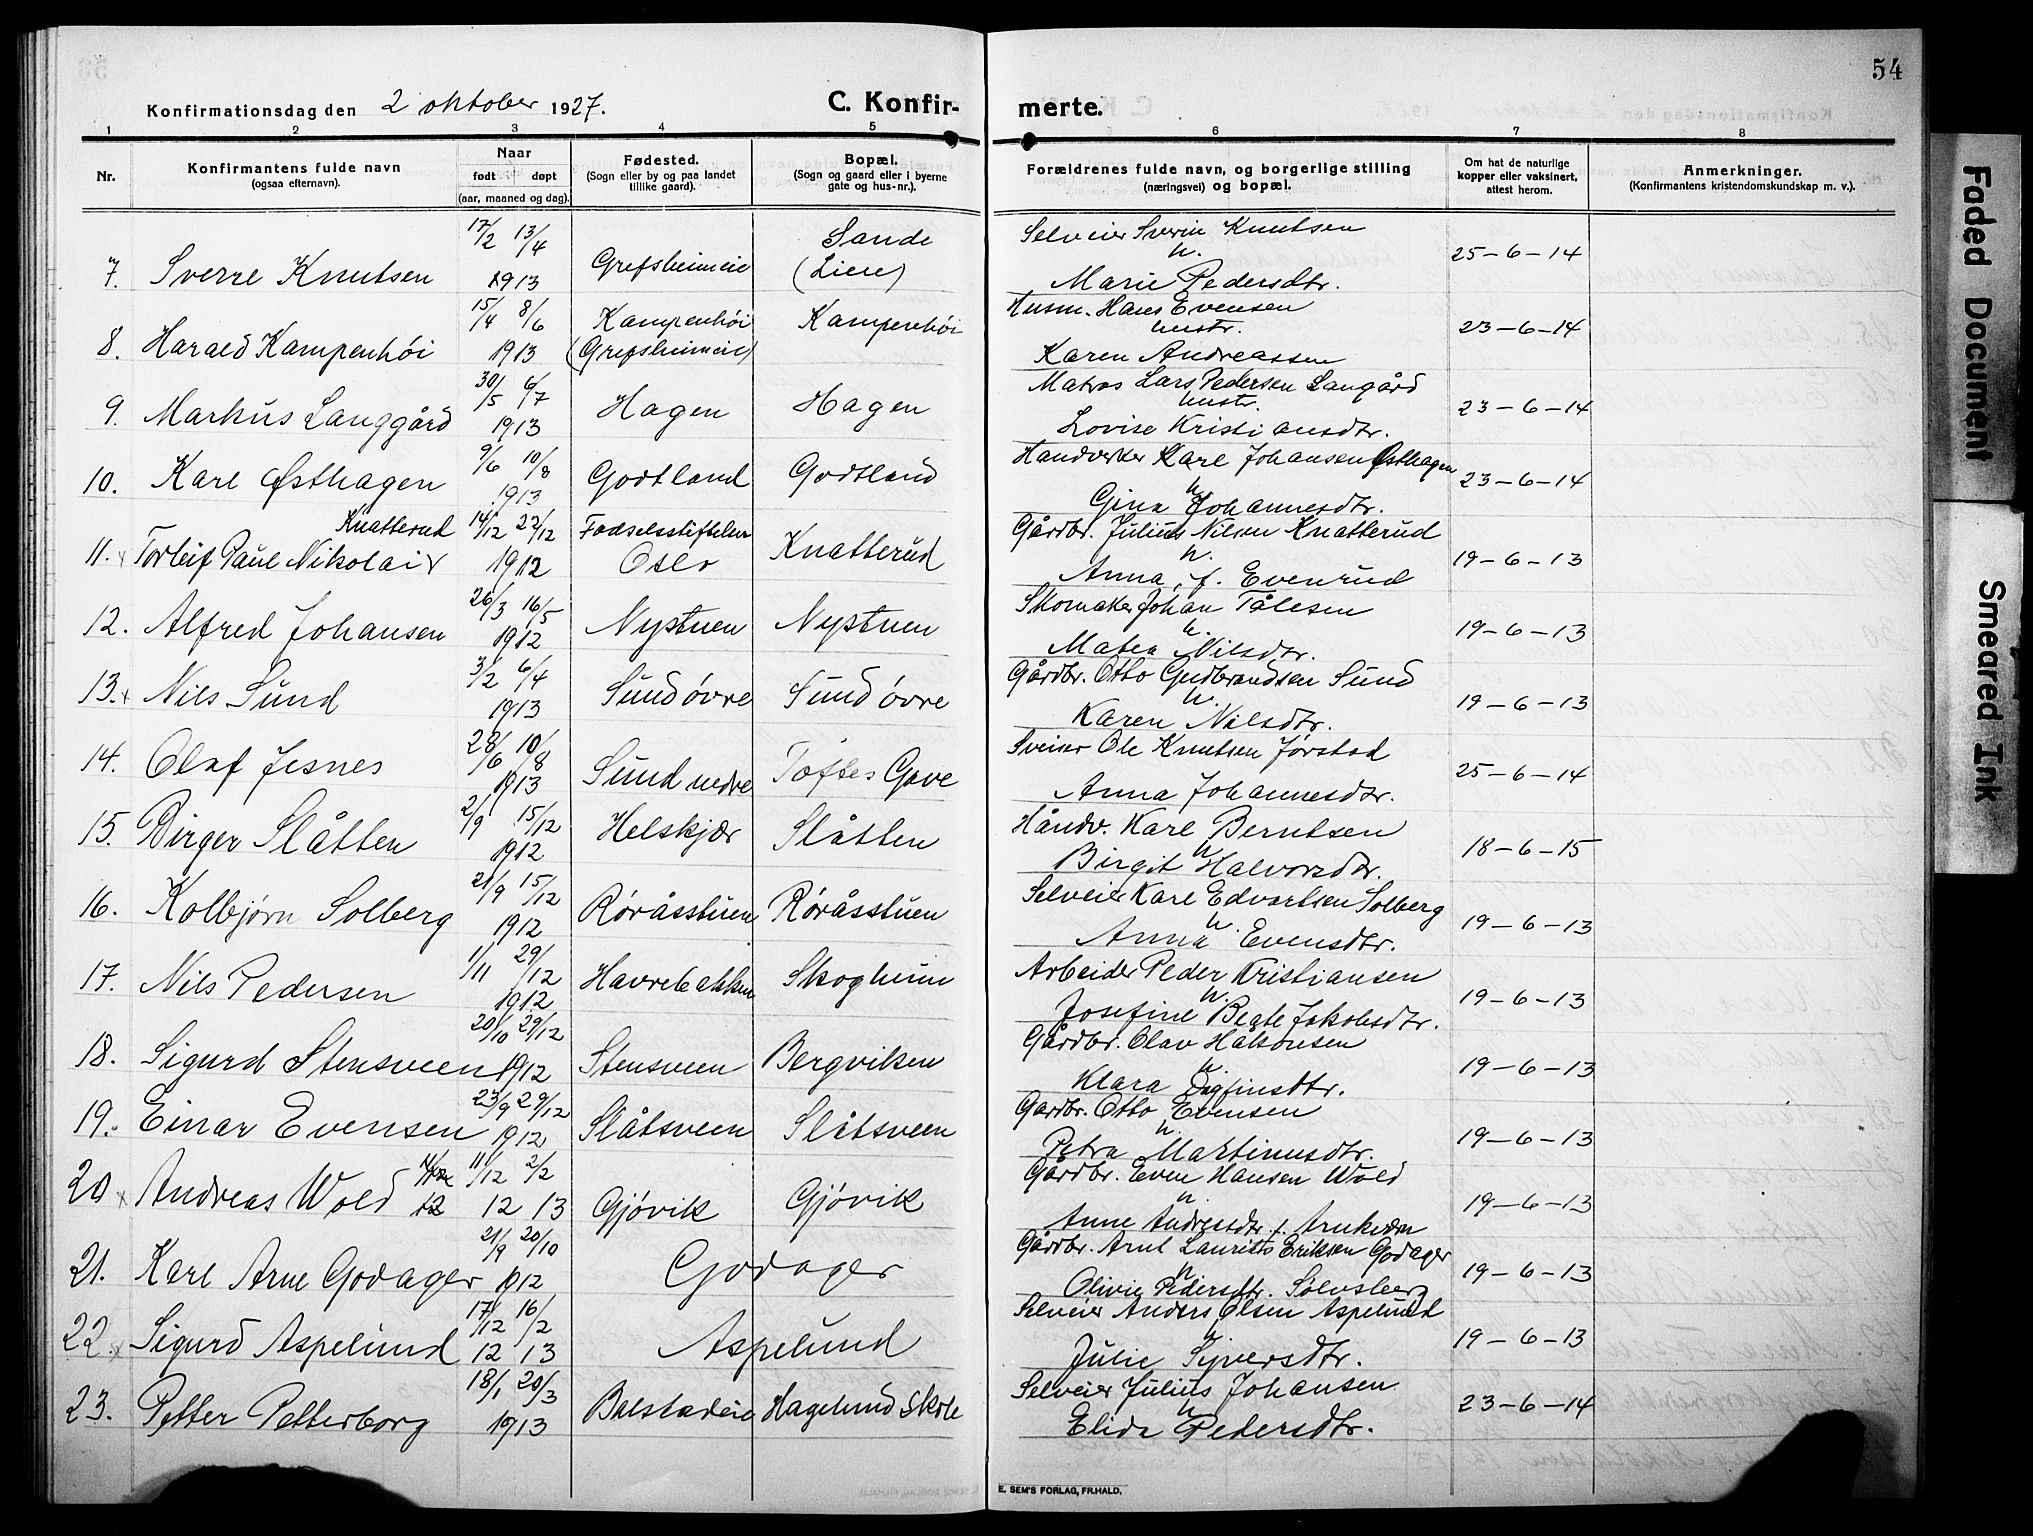 54
Konfirmationsdag den 2 oktober 1927. C. Konfir- merte.
1 2 3 4 5 6 7 8
Nr. Konfirmantens fulde navn (ogsaa efternavn). Naar født døpt (aar, maaned og dag). Fødested. (Sogn eller by og paa landet tillike gaard). Bopæl. (Sogn og gaard eller i byerne gate og hus-nr.). Forældrenes fulde navn, og borgerlige stilling (næringsvei) og bopæl. Om hat de naturlige kopper eller vaksinert, attest herom. Anmerkninger. (Konfirmantens kristendomskundskap m. v.).
7. Sverre Knutsen 17/2 13/4 1913 Grefsheimeie Sande (Liere) Selveier Sverin Knutsen h. Marie Pedersdtr. 25-6-14
8. Harald Kampenhøi 15/4 8/6 1913 Kampenhøi (Grefsheimeie) Kampenhøi Husm. Hans Evensen hustr. Karen Andreassen 23-6-14
9. Markus Langgård 30/5 6/7 1913 Hagen Hagen Matros Lars Pedersen Langård hustr. Lovise Kristiansdtr. 23-6-14
10. Karl Østhagen 9/6 10/8 1913 Godtland Godtland Handverker Karl Johansen Østhagen h. Gina Johannesdtr. 23-6-14
11. x Torleif Paul Nikolai Knatterud 14/12 27/12 1912 Fødselsstiftelsen Oslo Knatterud Gårdbr. Julius Nilsen Knatterud h. Anna, f. Evenrud 19-6-13
12. Alfred Johansen 26/3 16/5 1912 Nystuen Nystuen Skomaker Johan Tålesen h. Matea Nilsdtr. 19-6-13
13. x Nils Sund 3/2 6/4 1913 Sund øvre Sund øvre Gårdbr. Otto Gudbrandsen Sund h. Karen Nilsdtr. 19-6-13
14. Olaf Jesnes 28/6 10/8 1913 Sund nedre Toftes Gave Sveiser Ole Knutsen Jørstad Anna Johannesdtr. 25-6-14
15. Birger Slåtten 2/9 15/12 1912 Helskjær Slåtten Håndv. Karl Berntsen h. Birgit Halvorsdtr. 18-6-15
16. Kolbjørn Solberg 21/9 15/12 1912 Røråsstuen Røråsstuen Selveier Karl Edvartsen Solberg h. Anna Evensdtr. 19-6-13
17. Nils Pedersen 1/11 29/12 1912 Havrebakken Skogheim Arbeider Peder Kristiansen h. Josefine Beate Jakobsdtr. 19-6-13
18. Sigurd Stensveen 20/10 29/12 1912 Stensveen Bergviken Gårdbr. Olav h. Klara Dagfinsdtr. 19-6-13
19. Einar Evensen 23/9 29/12 1912 Slåtsveen Slåtsveen Gardbr. Otto Evensen h. Petra Martinusdtr. 19-6-13
20 x Andreas Wold 11/12 2/2 12 13 Gjøvik Gjøvik Gårdbr. Even Hansen Wold h. Anne Andersdtr. f. Arnkværn 19-6-13
21. Karl Arne Godager 21/9 20/10 1912 Godager Gårdbr. Arnt Laurits Eriksen Godager h. Olivie Pedersdtr. Sølvsberg 19-6-13
22. x Sigurd Aspelund 17/12 16/2 12 13 Aspelund Selveier Anders Olsen Aspelund h. Julie Syversdtr. 19-6-13
23. Petter Petterborg 18/1 20/3 1913 Balstadeie Hagelund skole Selveier Julius Johansen h. Elida Pedersdtr. 23-6-14
E. SEM'S FORLAG, FR.HALD.
Faded Document
Smeared Ink